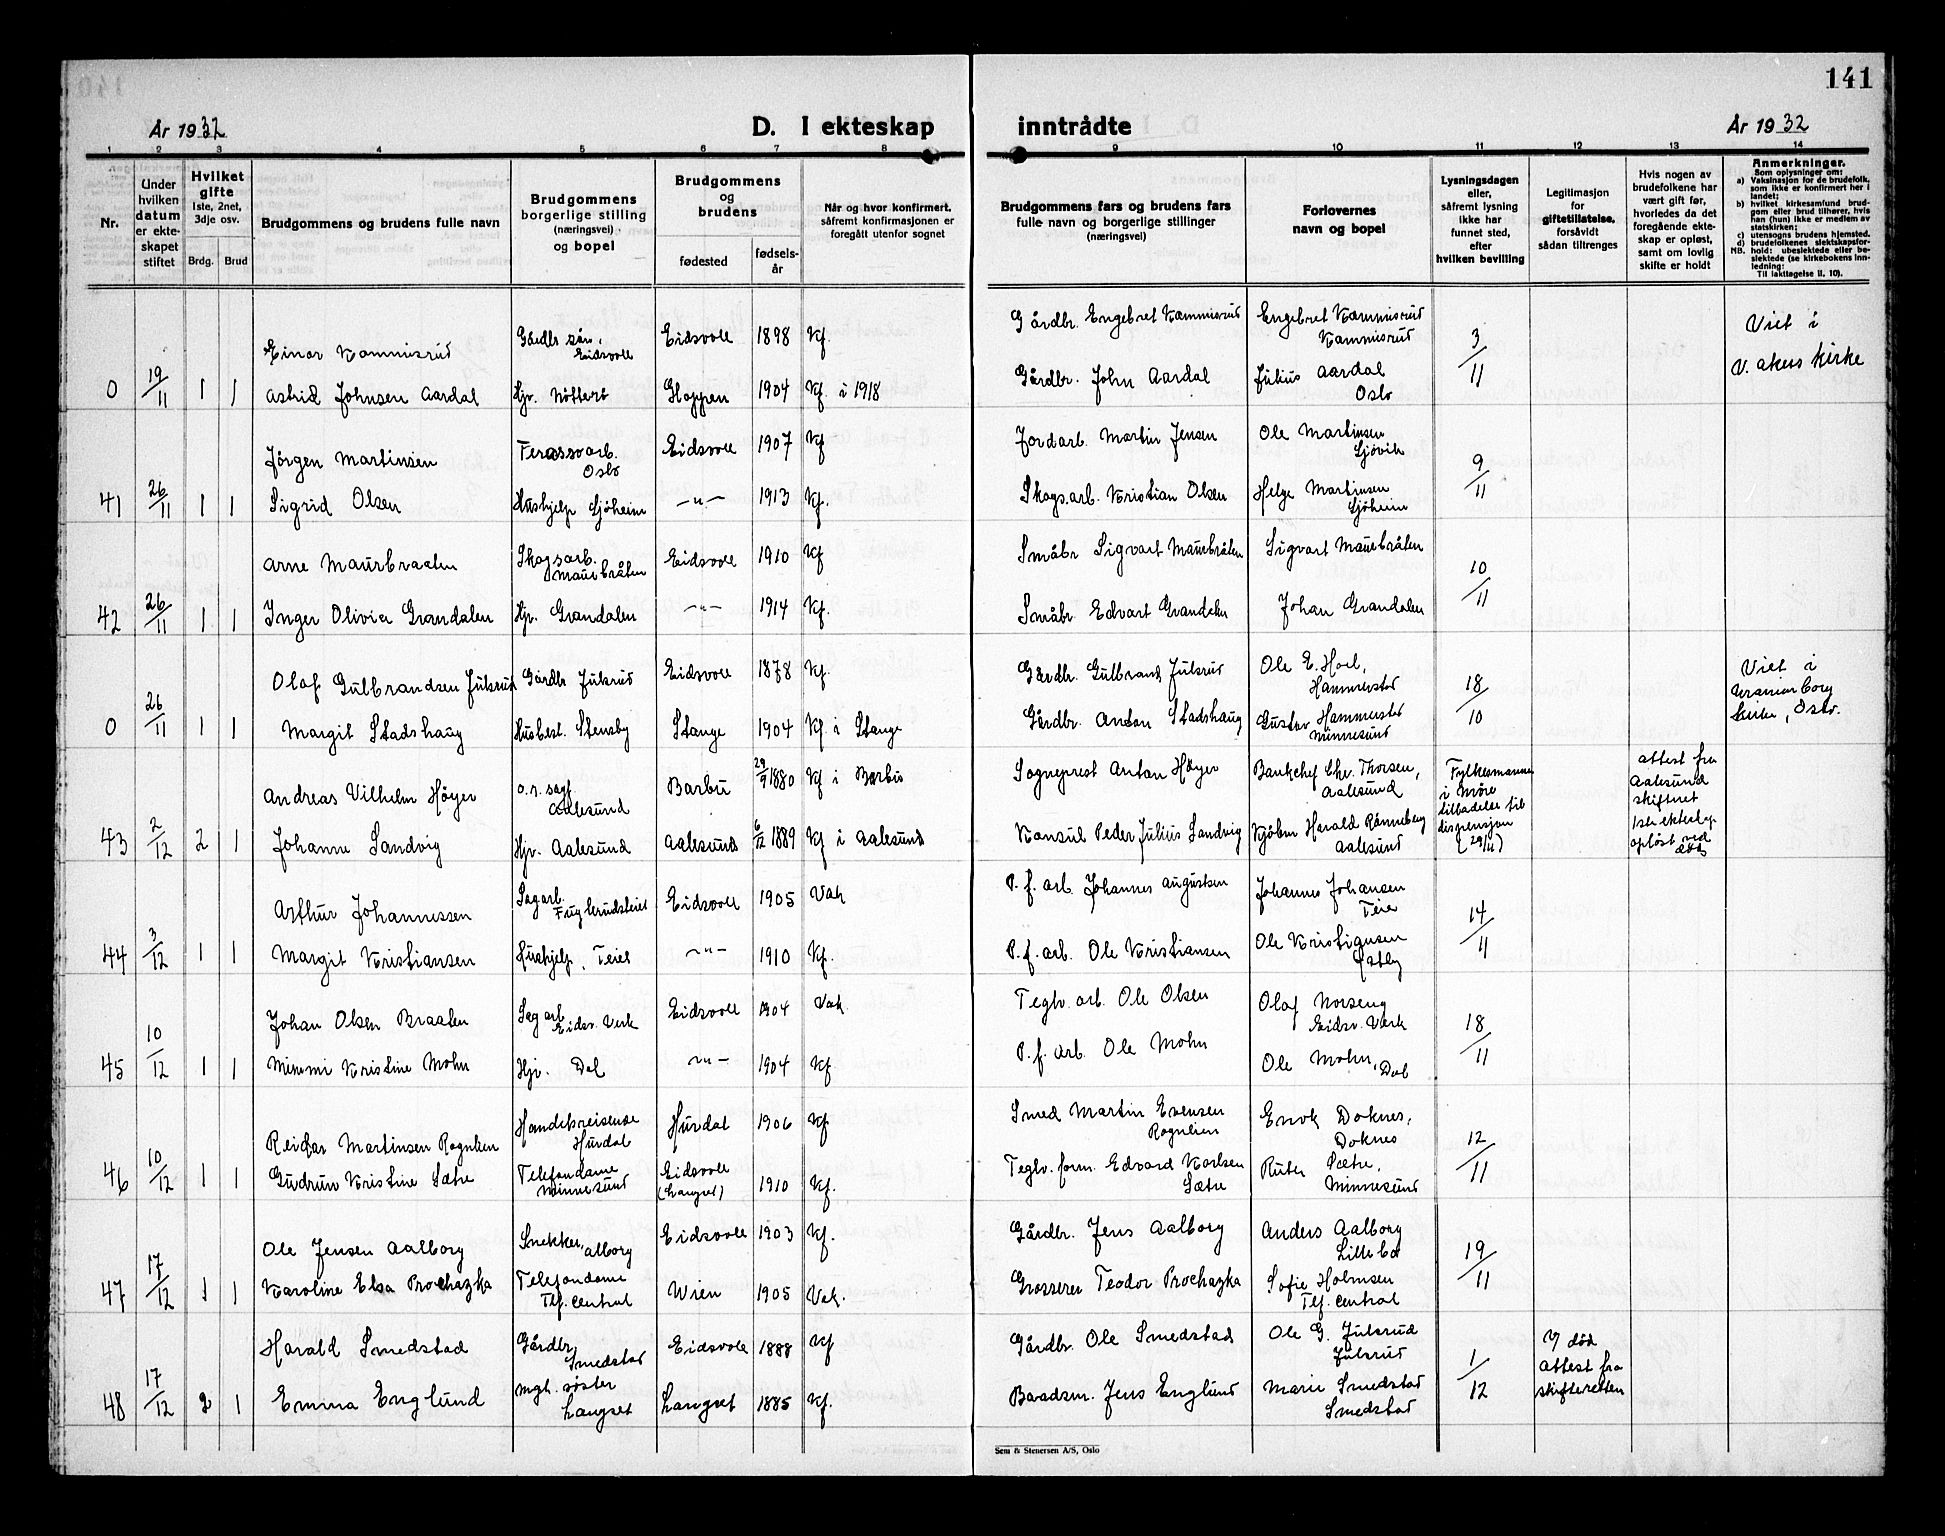 141
År 1932
D. I ekteskap inntrådte
År 1932
1 2 3 4 5 6 7 8 9 10 11 12 13 14
Nr.
Under hvilken datum er ekteskapet stiftet
Hvilket gifte
1ste, 2net, 3dje osv.
Brdg. Brud
Brudgommens og brudens fulle navn
Brudgommens borgerlige stilling (næringsvei) og bopel
Brudgommens og brudens
fødested
fødselsår
Når og hvor konfirmert,
såfremt konfirmasjonen er
foregått utenfor sognet
Brudgommens fars og brudens fars
fulle navn og borgerlige stillinger
(næringsvei)
Forlovernes
navn og bopel
Lysningsdagen
eller,
såfremt lysning
ikke har
funnet sted,
efter
hvilken bevilling
Legitimasjon
for
giftetillatelse,
forsåvidt
sådan tiltrenges
Hvis nogen av
brudefolkene har
vært gift før,
hvorledes da det
foregående ekte-
skap er opløst,
samt om lovlig
skifte er holdt
Anmerkninger.
Som oplysninger om:
a) Vaksinasjon for de brudefolk, som ikke er konfirmert her i landet;
b) hvilket kirkesamfund brudgom eller brud tilhører, hvis han (hun) ikke er medlem av statskirken;
c) utensogns brudens hjemsted.
d) brudefolkenes slektskapsforhold: ubeslektede eller beslektede (se kirkebokens innledning:
NB. Til iakttagelse II. 10).
Einar Kammisrud Gårdbr. søn, Eidsvoll Eidsvoll 1898 Kf. Gårdbr. Engebret Kammisrud Engebret Kammisrud Kammisrud 3/11 Viet i
0 19/11 1 1 Astrid Johnsen Aardal Hjv. Nötteró Gloppen 1904 Kf. i 1918 Gårdbr. John Aardal Julius Aardal Oslo V. Akers Kirke
Jörgen Martinsen Oslo Eidsvoll 1907 Kf Jordarb. Martin Jensen Ole Martinsen Sjövik 9/11
41 26/11 1 1 Sigrid Olsen Hushjelp Sjöheim -"- 1913 Kf. Skogsarb. Kristian Olsen Helge Martinsen Sjöheim
Arne Maurbraaten Skogsarb. Maurbråten Eidsvoll 1910 Kf Småbr Sigvart Maurbråten Sigvart Maurbråten 10/11
42 26/11 1 1 Inger Olivia Grandalen Hjv. Grandalen -"- 1914 Kf. Småbr Edvart Grandalen Johan Grandalen
Olaf Gulbrandsen Julsrud Gårdbr Julsrud Eidsvoll 1878 Kf. Gårdbr. Gulbrand Julsrud Ole E. Hammerstad 18/10 Viet i
0 26/11 1 1 Margit Stadshaug Husbest. Stensby Stange 1904 Kf. i Stange Gårdbr. Anton Stadshaug Gustav Hammerstad Minnesund Uranienborg kirke, Oslo.
Andreas Vilhelm Höyer o.r. sagf. Aalesund Barbu 29/9 1880 Kf i Barbu Sogneprest Anton Höyer Bankchef Chr. Thorsen, Aalesund Fylkesmannen i Möre tilladelse til dispensjon (29/11) Attest fra Aalesund skifteret
43 2/12 2 1 Johanne Sandvig Hjv. Aalesund Aalesund 6/12 1889 Kf i Aalesund Konsul Peder Julius Sandvig Kjöbm Harald Rönneberg Aalesund 1ste ekteskap oplöst ved död
Arthur Johannessen Sagarb. Eidsvoll 1905 Vak P. f. arb. Johannes Augustsen Johannes Johansen Teie 14/11
44 3/12 1 1 Margit Kristiansen Hushjelp, Teiet -"- 1910 Kf. P. f. arb. Ole Kristiansen Ole Kristiansen Østby
Johan Olsen Braaten Sagarb Eidsv. Verk Eidsvoll 1904 Vak Teglv. arb. Ole Olsen Olaf Norseng Eidsv. Værk 18/11
45 10/12 1 1 Mimmi Kristine Mohn Hjv. Dal -"- 1904 Kf P. f. arb. Ole Mohn Ole Mohn, Dal
Reidar Martinsen Rognlien Handelsreisende Hurdal Hurdal 1906 Kf Smed Martin Evensen Rognlien Enok Doknes, Doknes 12/11
46 10/12 1 1 Gudrun Kristine Sætre Telefondame Minnesund Eidsvoll (Langset) 1910 Kf. Teglv. form. Edvard Karlsen Sætre Ruth Sætre, Minnesund
Ole Jensen Aalborg Snekker, Alborg Eidsvoll 1903 Kf. Gårdbr. Jens Aalborg Anders Aalborg 19/11
47 17/12 1 1 Karoline Elsa Prochazka Telefondame Tlf. Central Wien 1905 Vak. Grosserer Teodor Prochazka Sofie Holmsen Tlf. Central
Harald Smedstad Gårdbr, Smedstad Eidsvoll 1888 Kf Gårdbr. Ole Smedstad Ole G. Julsrud Julsrud 1/12 død attest fra skifteretten
48 17/12 2 1 Emma Englund Langset Langset 1885 Kf. Baadsm. Jens Englund Marie Smedstad Smedstad
Sem & Stenersen A/S, Oslo